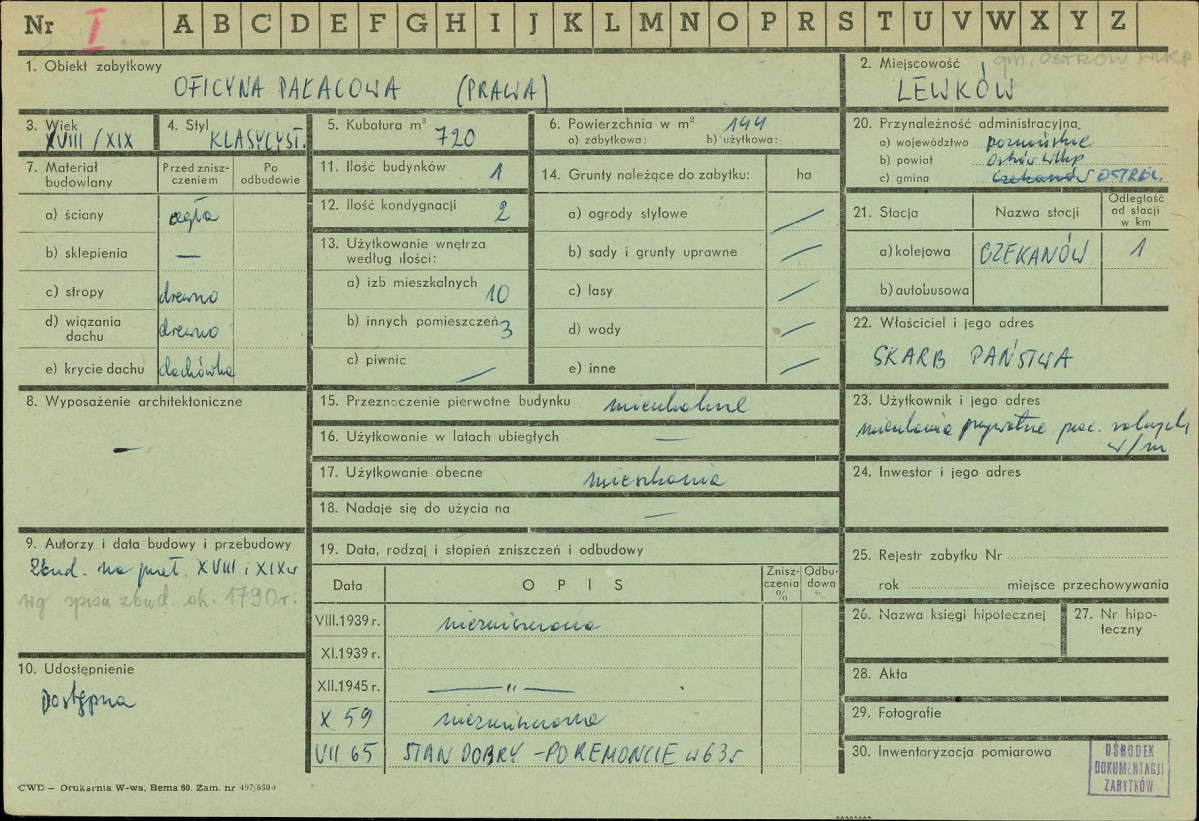 Nr I A B C D E F G H I J K L M N O P R S T U V W X Y Z
1. Obiekt zabytkowy
OFICYNA PAŁACOWA (PRAWA)
2. Miejscowość gm. OSTRÓW WLKP
LEWKÓW
3. Wiek
XVIII/XIX
4. Styl
KLASYCYST.
5. Kubatura m³
720
6. Powierzchnia w m² 144
a) zabytkowa: b) użytkowa:
7. Materiał budowlany
Przed znisz-
czeniem
Po
odbudowie
a) ściany cegła
b) sklepienia —
c) stropy drewno
d) wiązania
dachu drewno
e) krycie dachu dachówka
8. Wyposażenie architektoniczne
—
9. Autorzy i data budowy i przebudowy
Zbud. na przeł. XVIII i XIX w
wg spisu zbud. ok. 1790 r.
10. Udostępnienie
Dostępna
11. Ilość budynków 1
12. Ilość kondygnacji 2
13. Użytkowanie wnętrza
według ilości:
a) izb mieszkalnych 10
b) innych pomieszczeń 3
c) piwnic —
14. Grunty należące do zabytku: ha
a) ogrody stylowe —
b) sady i grunty uprawne —
c) lasy —
d) wody —
e) inne —
15. Przeznaczenie pierwotne budynku mieszkalne
16. Użytkowanie w latach ubiegłych —
17. Użytkowanie obecne mieszkania
18. Nadaje się do użycia na —
19. Data, rodzaj i stopień zniszczeń i odbudowy
Data OPIS Znisz-
czenia
%
Odbu-
dowa
%
VIII.1939 r. niezniszczona
XI.1939 r.
XII.1945 r. — " —
X 59 niezniszczona
VII 65 STAN DOBRY – PO REMONCIE w 63 r
20. Przynależność administracyjna
a) województwo poznańskie
b) powiat Ostrów Wlkp
c) gmina Czekanów OSTRÓW.
21. Stacja Nazwa stacji Odległość
od stacji
w km
a) kolejowa CZEKANÓW 1
b) autobusowa
22. Właściciel i jego adres
SKARB PAŃSTWA
23. Użytkownik i jego adres
mieszkania prywatne prac. rolnych
w/m
24. Inwestor i jego adres
25. Rejestr zabytku Nr
rok miejsce przechowywania
26. Nazwa księgi hipotecznej
27. Nr hipo-
teczny
28. Akta
29. Fotografie
30. Inwentaryzacja pomiarowa
OŚRODEK
DOKUMENTACJI
ZABYTKÓW
CWD – Drukarnia W-wa, Bema 60. Zam. nr 497/5500